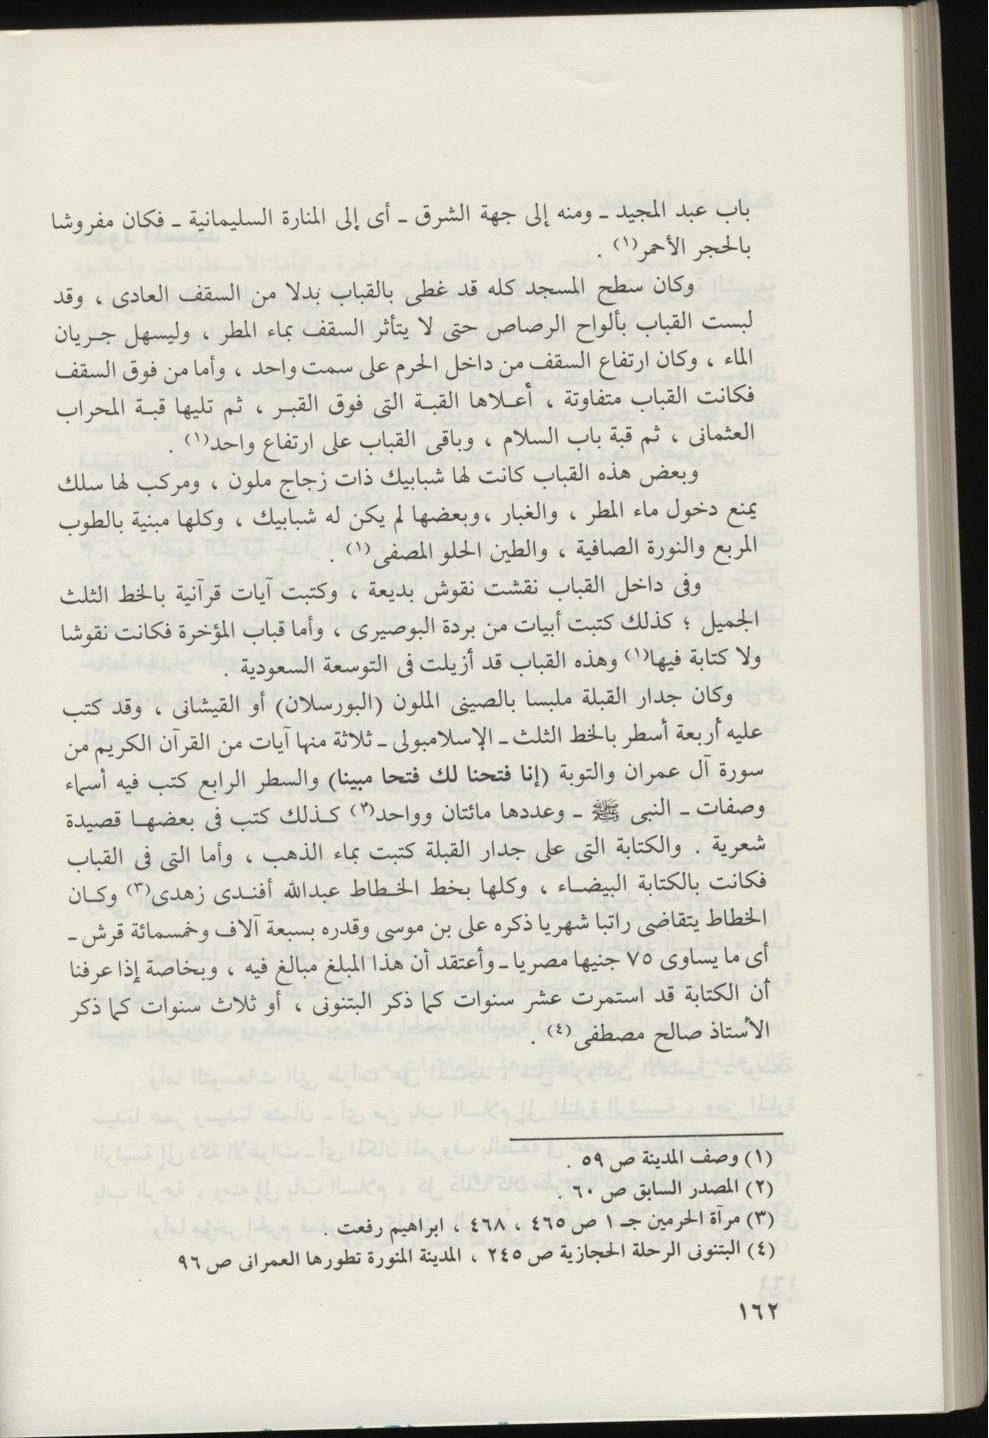 باب عبد المجيد ـ ومنه إلى جهة الشرق ـ أى إلى المنارة السليمانية ـ فكان مفروشا
بالحجر الأحمر(١) .
وكان سطح المسجد كله قد غطى بالقباب بدلا من السقف العادى ، وقد
لبست القباب بألواح الرصاص حتى لا يتأثر السقف بماء المطر ، وليسهل جريان
الماء ، وكان ارتفاع السقف من داخل الحرم على سمت واحد ، وأما من فوق السقف
فكانت القباب متفاوتة ، أعلاها القبة التى فوق القبر ، ثم تليها قبة المحراب
العثمانى ، ثم قبة باب السلام ، وباقى القباب على ارتفاع واحد(١) .
وبعض هذه القباب كانت لها شبابيك ذات زجاج ملون ، ومركب لها سلك
يمنع دخول ماء المطر ، والغبار ،وبعضها لم يكن له شبابيك ، وكلها مبنية بالطوب
المربع والنورة الصافية ، والطين الحلو المصفى(١) .
وفى داخل القباب نقشت نقوش بديعة ، وكتبت آيات قرآنية بالخط الثلث
الجميل ؛ كذلك كتبت أبيات من بردة البوصيرى ، وأما قباب المؤخرة فكانت نقوشا
ولا كتابة فيها(١) وهذه القباب قد أزيلت فى التوسعة السعودية .
وكان جدار القبلة ملبسا بالصينى الملون (البورسلان) أو القيشانى ، وقد كتب
عليه أربعة أسطر بالخط الثلث ـ الإسلامبولى ـ ثلاثة منها آيات من القرآن الكريم من
سورة آل عمران والتوبة (إنا فتحنا لك فتحا مبينا) والسطر الرابع كتب فيه أسماء
وصفات ـ النبى ﷺ ـ وعددها مائتان وواحد(٢) كذلك كتب فى بعضها قصيدة
شعرية . والكتابة التى على جدار القبلة كتبت بماء الذهب ، وأما التى فى القباب
فكانت بالكتابة البيضاء ، وكلها بخط الخطاط عبدالله أفندى زهدى(٣) وكان
الخطاط يتقاضى راتبا شهريا ذكره على بن موسى وقدره بسبعة آلاف وخمسمائة قرش ـ
أى ما يساوى ٧٥ جنيها مصريا ـ وأعتقد أن هذا المبلغ مبالغ فيه ، وبخاصة إذا عرفنا
أن الكتابة قد استمرت عشر سنوات كما ذكر البتنونى ، أو ثلاث سنوات كما ذكر
الأستاذ صالح مصطفى(٤) .
(١) وصف المدينة ص ٥٩ .
(٢) المصدر السابق ص ٦٠ .
(٣) مرآة الحرمين جـ ١ ص ٤٦٥ ، ٤٦٨ ، ابراهيم رفعت .
(٤) البتنونى الرحلة الحجازية ص ٢٤٥ ، المدينة المنورة تطورها العمرانى ص ٩٦
١٦٢